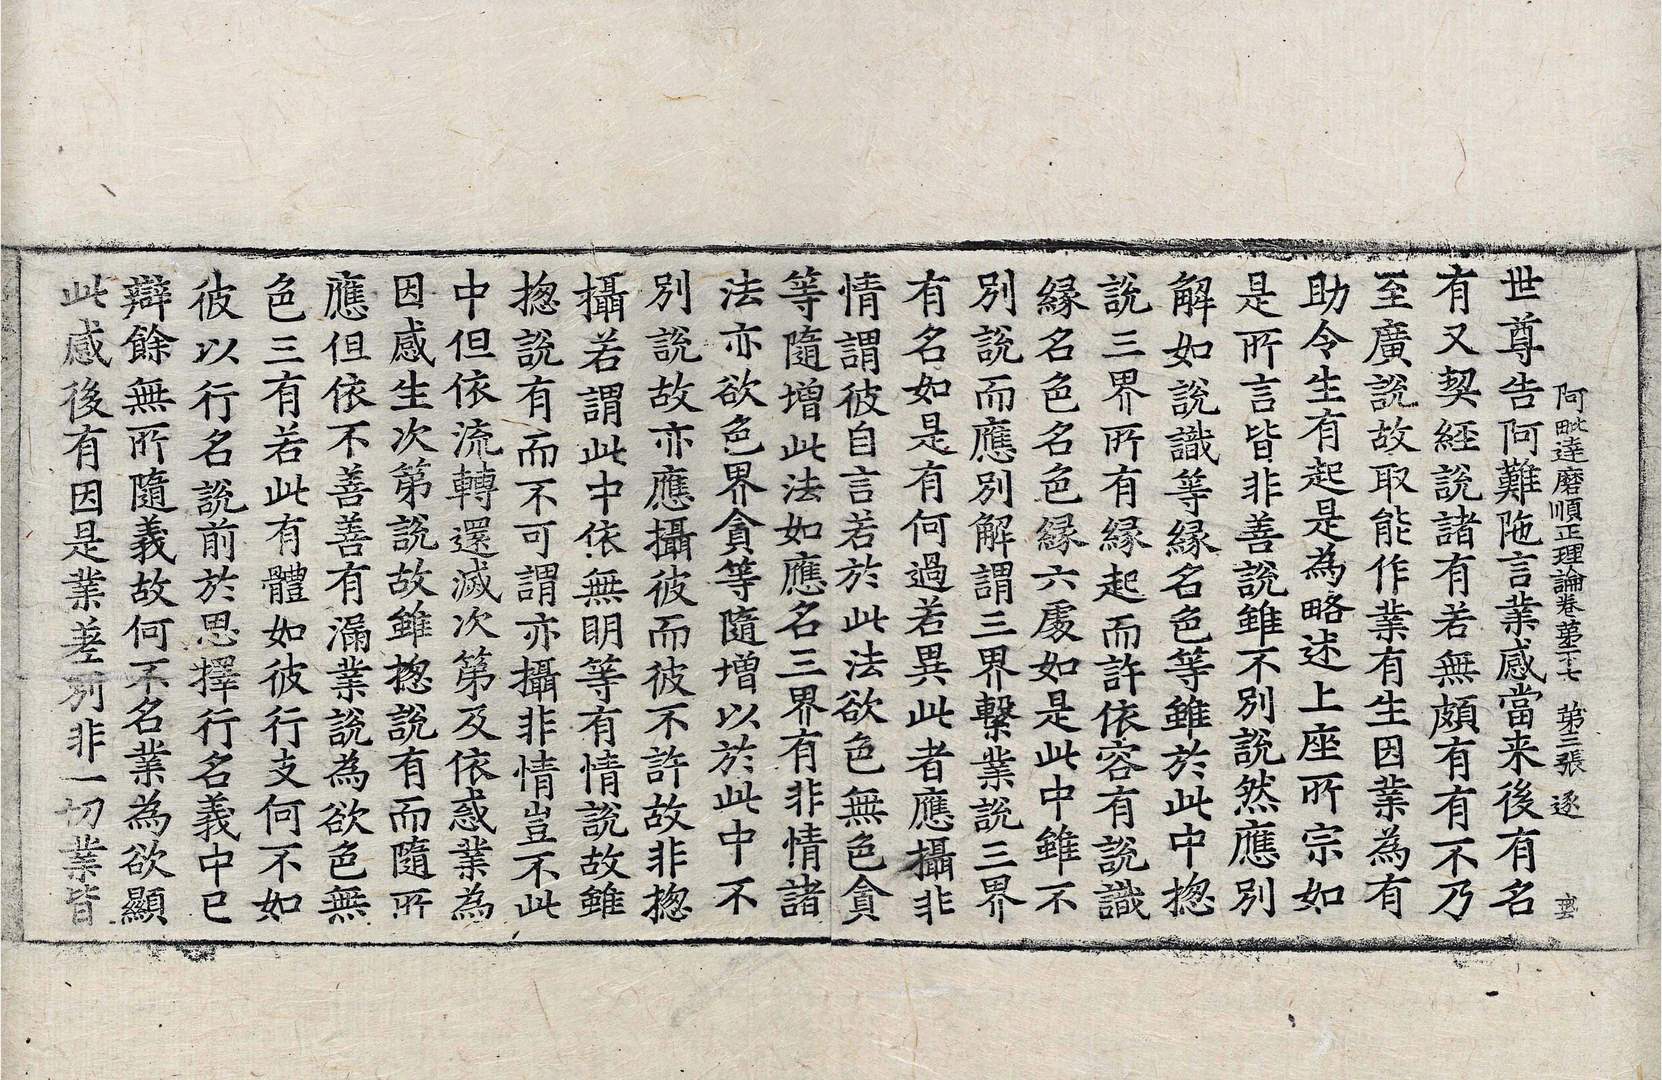 阿毗達磨順正理論卷第二十七　第三張　逐
世尊告阿難陁言業感當来後有名
有又契經說諸有若無頗有有不乃
至廣說故取能作業有生因業為有
助令生有起是為略述上座所宗如
是所言皆非善說雖不別說然應別
解如說識等縁名色等雖於此中揔
說三界所有縁起而許依容有說識
縁名色名色縁六處如是此中雖不
別說而應別解謂三界繫業說三界
有名如是有何過若異此者應攝非
情謂彼自言若於此法欲色無色貪
等隨增此法如應名三界有非情諸
法亦欲色界貪等隨增以於此中不
別說故亦應攝彼而彼不許故非揔
攝若謂此中依無明等有情說故雖
揔說有而不可謂亦攝非情豈不此
中但依流轉還滅次第及依惑業為
因感生次第說故雖揔說有而隨所
應但依不善善有漏業說為欲色無
色三有若此有體如彼行支何不如
彼以行名說前於思擇行名義中已
辯餘無所隨義故何不名業為欲顯
此感後有因是業差別非一切業皆